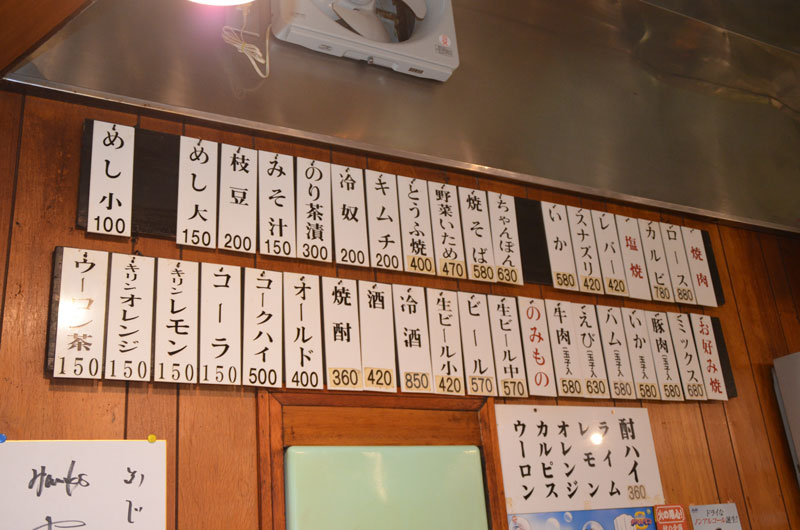 焼肉
ロース 880
カルビ 780
塩焼
レバー 420
スナズリ 420
いか 580
ちゃんぽん 630
焼そば 580
野菜いため 470
とうふ焼 400
キムチ 200
冷奴 200
のり茶漬 300
みそ汁 150
枝豆 200
めし大 150
めし小 100
お好み焼
ミックス 680
豚肉(玉子入) 580
いか(玉子入) 580
ハム(玉子入) 580
えび(玉子入) 630
牛肉(玉子入) 580
のみもの
生ビール中 570
ビール 570
生ビール小 420
冷酒 850
酒 420
焼酎 360
オールド 400
コークハイ 500
コーラ 150
キリンレモン 150
キリンオレンジ 150
ウーロン茶 150
酎ハイ 360
ライム
レモン
オレンジ
カルピス
ウーロン
ドライな
ノンアルコール誕生!